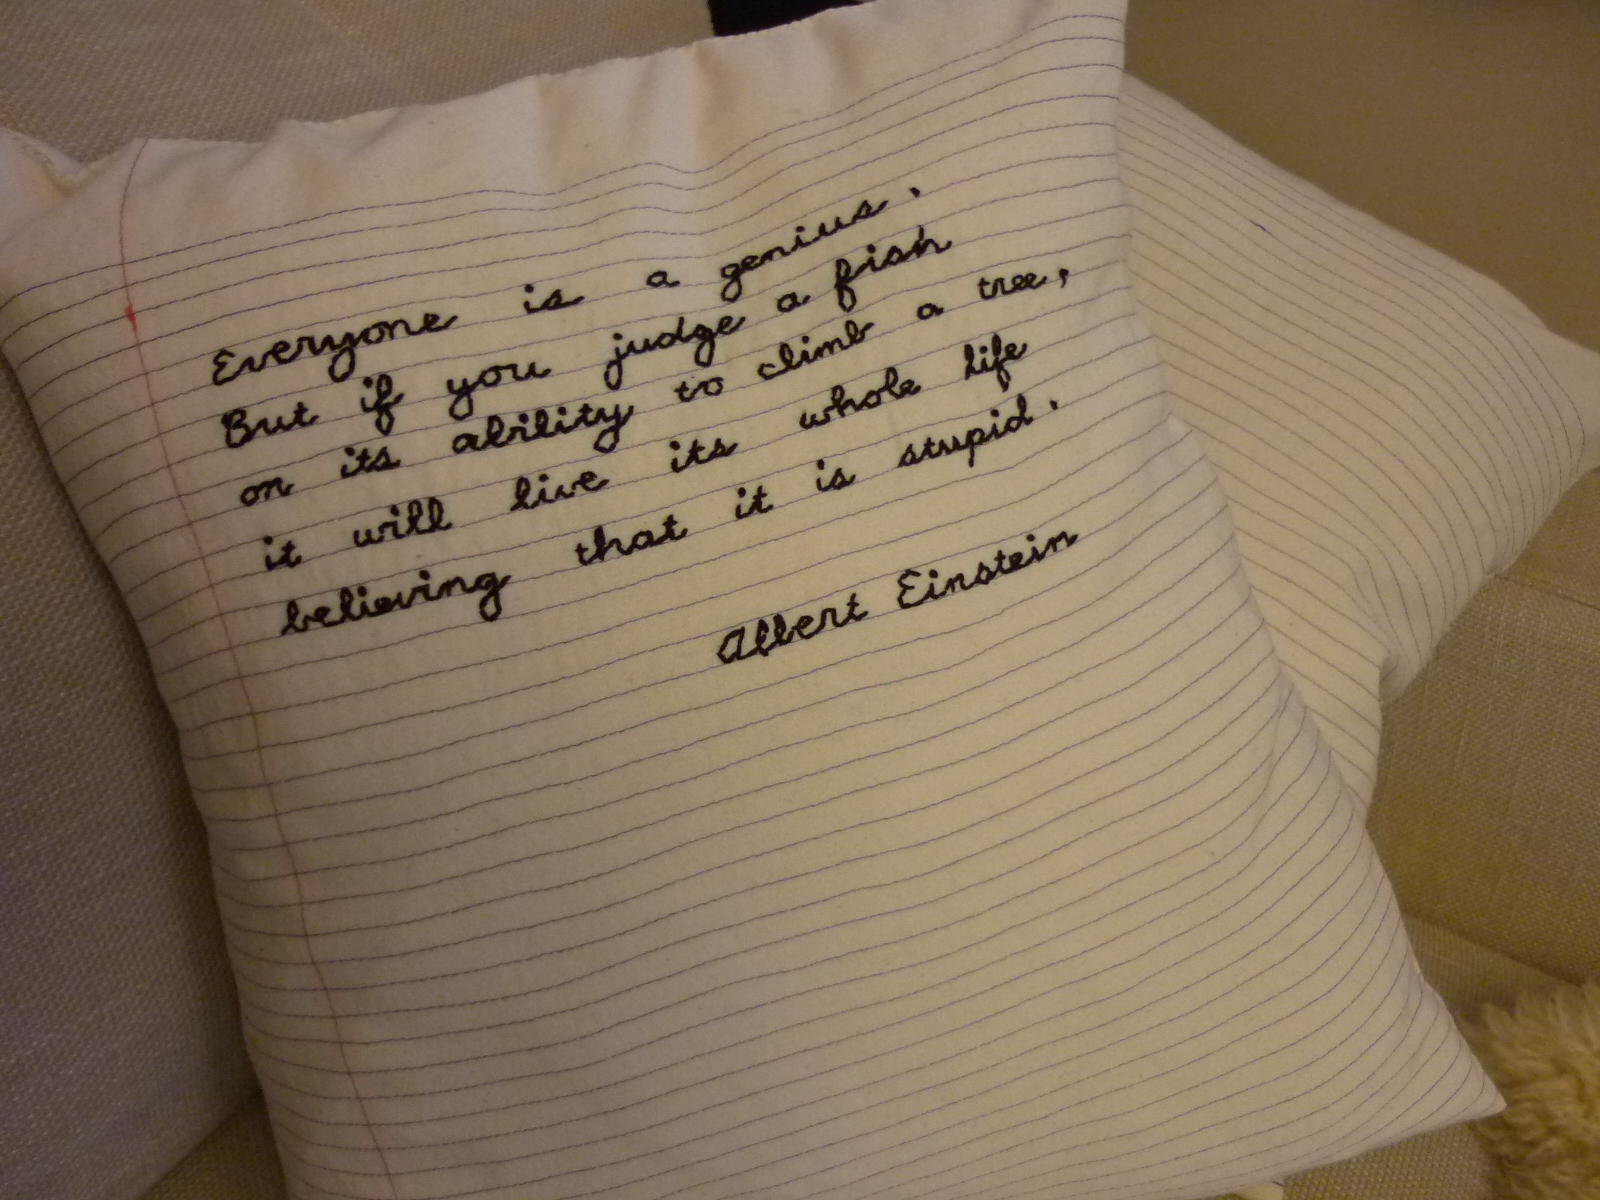 Everyone is a genius.
But if you judge a fish
on its ability to climb a tree,
it will live its whole life
believing that it is stupid.
Albert Einstein